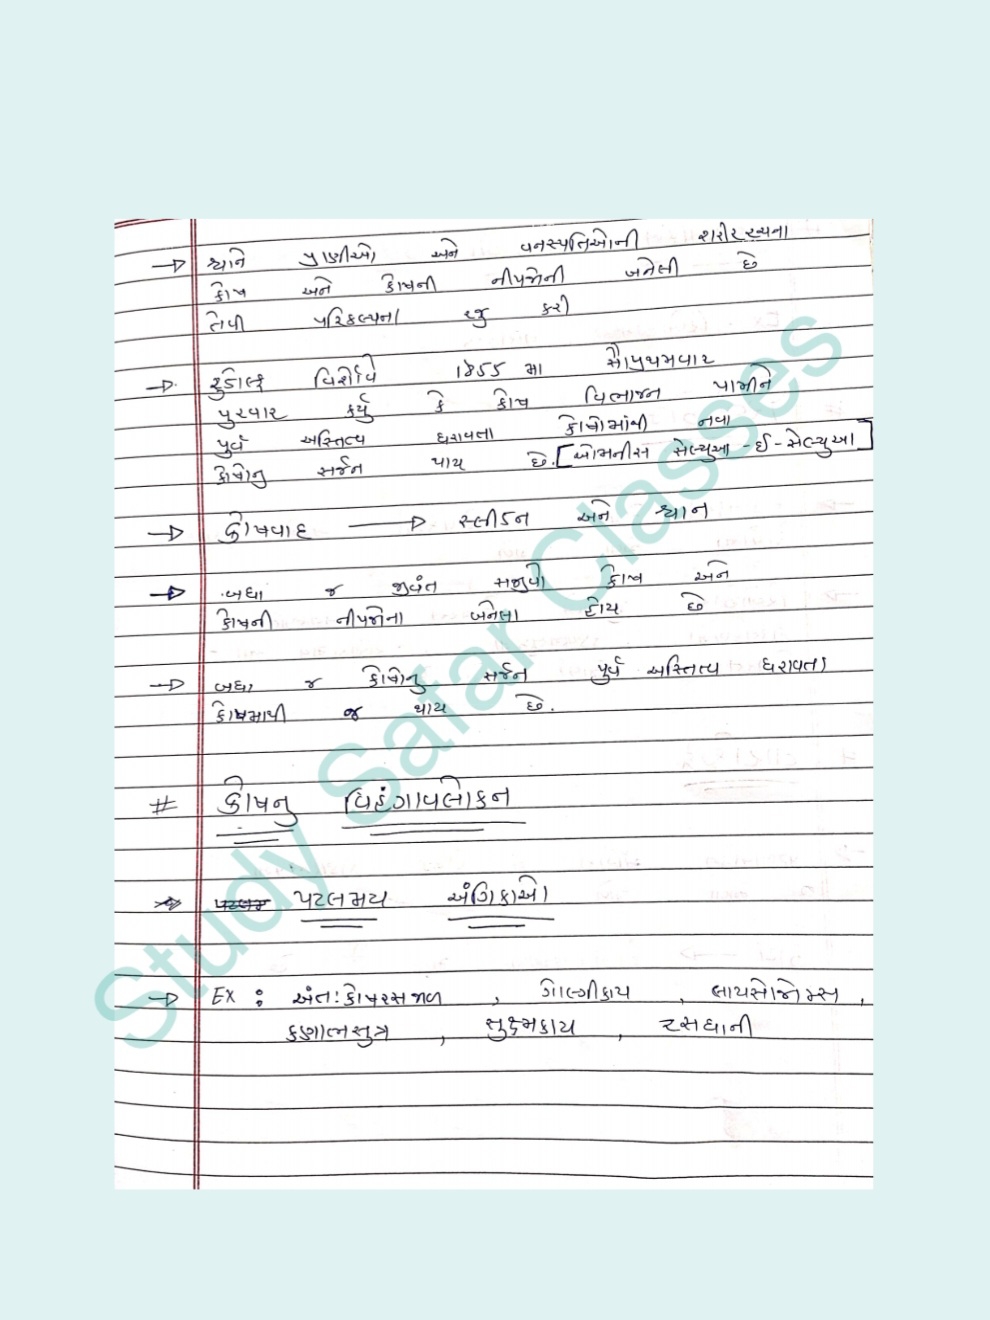 → શ્વાને પ્રાણીઓ અને વનસ્પતિઓની શરીર રચના
કોષ અને કોષની નીપજોની બનેલી છે
તેવી પરિકલ્પના રજુ કરી
→ રુડોલ્ફ વિર્શોવે 1855 મા સૌપ્રથમવાર
પુરવાર કર્યુ કે કોષ વિભાજન પામીને
પુર્વ અસ્તિત્વ ધરાવતા કોષોમાંથી નવા
કોષોનુ સર્જન થાય છે. [ઓમનીસ સેલ્યુઆ - ઈ - સેલ્યુઆ]
→ કોષવાદ → સ્લીડન અને શ્વાન
→ બધા જ જીવંત સજીવો કોષ અને
કોષની નીપજોના બનેલા હોય છે
→ બધા જ કોષોનુ સર્જન પુર્વ અસ્તિત્વ ધરાવતા
કોષમાથી જ થાય છે.
# કોષનુ વિહંગાવલોકન
→ પટલમય અંગિકાઓ
→ Ex : અંતઃકોષરસજાળ , ગોલ્ગીકાય , લાયસોજોમ્સ ,
કણાભસુત્ર , સુક્ષ્મકાય , રસધાની
Study Safar Classes